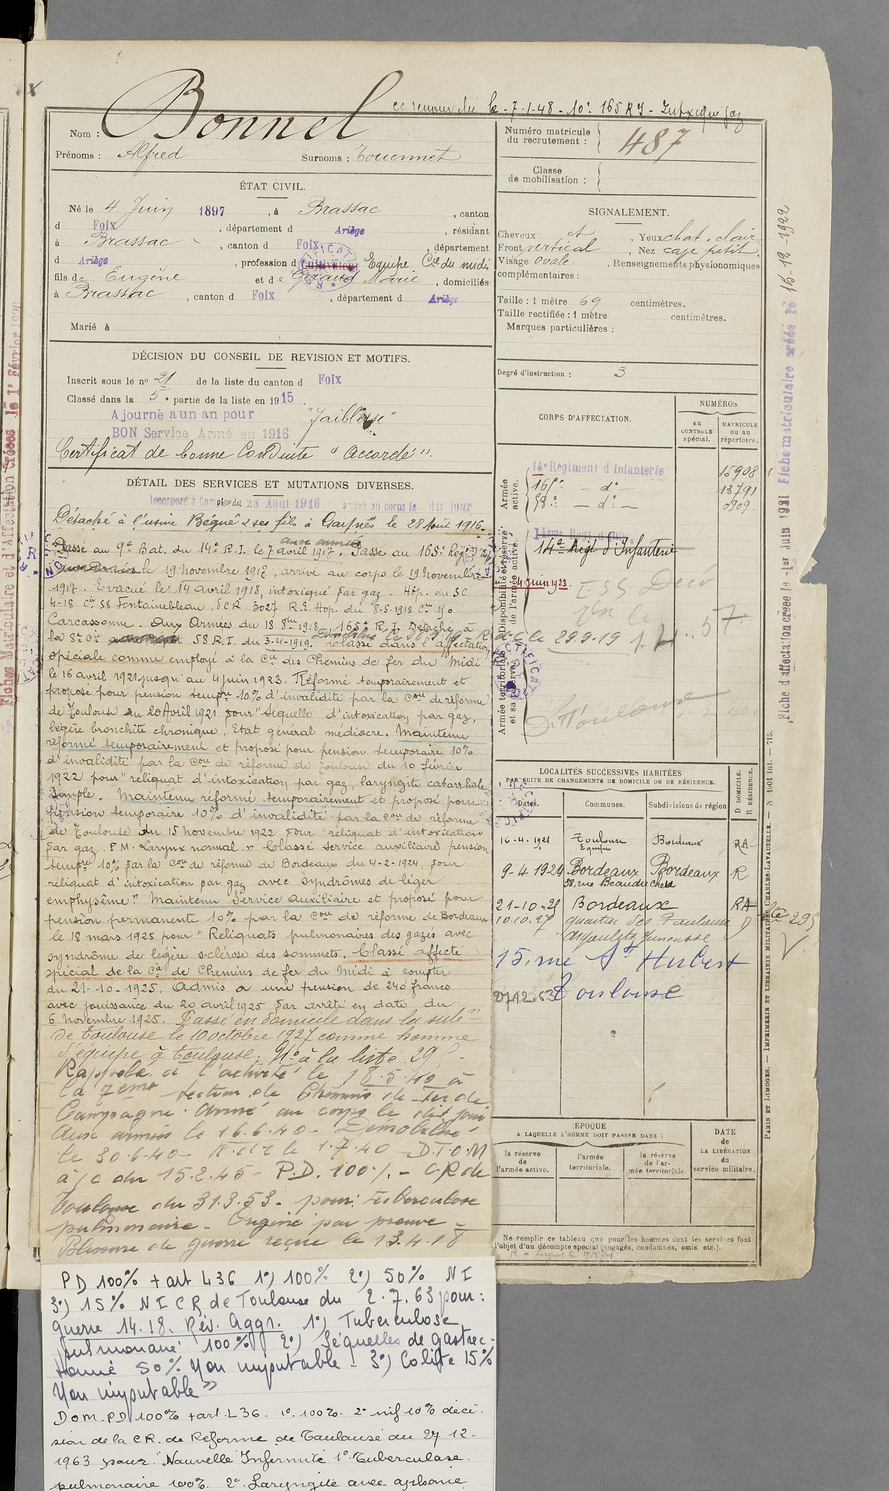 Bonnel
Nom :
Prénoms : Alfred Surnoms :
ÉTAT CIVIL.
Né le 4 Juin 1897, à Brassac, canton
d Foix, département d Ariège, résidant
à Brassac, canton d Foix, département
d Ariège, profession d Cultivateur Equipe Cie du midi
fils de Eugène et de Géraud Marie, domiciliés
à Brassac, canton d Foix, département d Ariège
Marié à
DÉCISION DU CONSEIL DE REVISION ET MOTIFS.
Inscrit sous le no 21 de la liste du canton d Foix
Classé dans la 5e partie de la liste en 1915
Ajourné a un an pour "faiblesse"
BON Service Armé en 1916
Certificat de bonne Conduite "Accordé".
DÉTAIL DES SERVICES ET MUTATIONS DIVERSES.
Incorporé à compter du 28 Août 1916 arrivé au corps le dit jour
Détaché à l'usine Bégué & ses fils à le 28 Août 1916.
aux armées
Passé au 9e Bat. du 14e R.I. le 7 avril 1917. Passé au 165e Regt
le 19 novembre 1917, arrivé au corps le 19 novembre
1917. Evacué le 14 avril 1918, intoxiqué par gaz. Hôp. du SC
4-18 Cre S8 Fontainbleau. S.C.R. R.E. Hop. du 8-5-1918 Cre
Carcassonne. Aux Armées du 1918 165e R.I. Détaché à
la 8e Cie 58 R.I. du 3-4-1919. Classé dans l'affectation
spéciale comme employé à la Cie des Chemins de fer du Midi
le 16 avril 1921 jusqu'au 4 juin 1923. Réformé temporairement et
proposé pour pension tempre 10% d'invalidité par la Con de réforme
de Toulouse du 20 Avril 1921 pour "séquelle d'intoxication par gaz,
légère bronchite chronique, Etat général médiocre. Maintenu
réformé temporairement et proposé pour pension temporaire 10%
d'invalidité par la Con de réforme de Toulouse du 10 février
1922 pour "reliquat d'intoxication par gaz, laryngite catarrhale
simple. Maintenu réformé temporairement et proposé pour
pension temporaire 10% d'invalidité par la Con de réforme
de Toulouse du 15 novembre 1922 pour "reliquat d'intoxication
par gaz. P.M. Larynx normal." Classé service auxiliaire pension
tempre 10% par la Con de réforme de Bordeaux du 4-2-1924, pour
reliquat d'intoxication par gaz avec syndrômes de léger
emphysème" Maintenu service auxiliaire et proposé pour
pension permanente 10% par la Con de réforme de Bordeaux
le 18 mars 1925 pour "Reliquats pulmonaires des gazés avec
syndrôme de légère sclérose des sommets. Classé affecté
spécial de la Cie de Chemins de fer du Midi à compter
du 21-10-1925. Admis à une pension de 240 francs
avec jouissance du 20 avril 1925 par arrêté en date du
6 novembre 1925. Passé en domicile dans la subon
de Toulouse le 10 octobre 1927 comme homme
d'équipe à Toulouse. No à la liste 29
Rappelé à l'activité le 18.5.40 à
la 7eme section de Chemins de Fer de
Campagne. Arrivé au corps le dit jour
Aux armées le 16.6.40 - Démobilisé
le 30.6.40 - R.d.C le 1.7.40 - D.T.O.M
à/c du 15.2.45 - P.D. 100% - CR de
Toulouse du 31.3.53. pour: tuberculose
pulmonaire - Origine par preuve -
Blessure de guerre reçue le 13.4.18
PD 100% + art L 36 1°) 100% 2°) 50% NI
3°) 15% NI CR de Toulouse du 2.7.63 pour:
guerre 14.18. Rév. Aggr. 1°) Tuberculose
pulmonaire 100% 2°) Séquelles de gastrec-
tomie 50% Non imputable - 3°) Colite 15%
Non imputable"
Dom. PD 100% + art. L 36. 1° 100% 2° 10% déci-
sion de la C.R. de Réforme de Toulouse du 27-12-
1963 pour: "Nouvelle Infirmité 1° Tuberculose
pulmonaire 100% 2° Laryngite avec aphonie
Numéro matricule
du recrutement : 487
Classe
de mobilisation :
SIGNALEMENT.
Cheveux, Yeux chat. clair
Front vertical, Nez
Visage ovale, Renseignements physionomiques
complémentaires :
Taille : 1 mètre 69 centimètres.
Taille rectifiée : 1 mètre centimètres.
Marques particulières :
Degré d'instruction : 3
CORPS D'AFFECTATION.
NUMÉROS
AU CONTRÔLE spécial.
MATRICULE OU AU répertoire.
Armée active.
14e Régiment d'Infanterie 15908
165e - do - 13791
58e - do -
Disponibilité et réserve de l'armée active.
14e Régt d'Infanterie
4 Juin 1923.
29.9.19
Armée territoriale et sa réserve.
Toulouse
LOCALITÉS SUCCESSIVES HABITÉES
PAR SUITE DE CHANGEMENTS DE DOMICILE OU DE RÉSIDENCE.
Dates. Communes. Subdivisions de région D. DOMICILE. R. RÉSIDENCE.
16-4-1921 Toulouse Bordeaux RA
9-4-1924 Bordeaux Bordeaux R
21-10-25 Bordeaux RA
10.10.27 Toulouse D
15, rue St Hubert
Toulouse
ÉPOQUE
A LAQUELLE L'HOMME DOIT PASSER DANS :
la réserve de l'armée active.
l'armée territoriale.
la réserve de l'armée territoriale.
DATE de LA LIBÉRATION du service militaire.
Ne remplir ce tableau que pour les hommes dont les services font
l'objet d'un décompte spécial (engagés, condamnés, omis, etc.).
Fiche d'affectation créée le 1er Juin 1921 Fiche matriculaire créée le 15-12-1922
PARIS ET LIMOGES. — IMPRIMERIE ET LIBRAIRIE MILITAIRES CHARLES-LAVAUZELLE